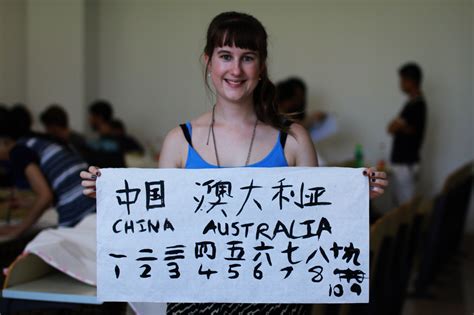 中国 澳大利亚
CHINA AUSTRALIA
一 二 三 四 五 六 七 八 十 九
1 2 3 4 5 6 7 8 10 9